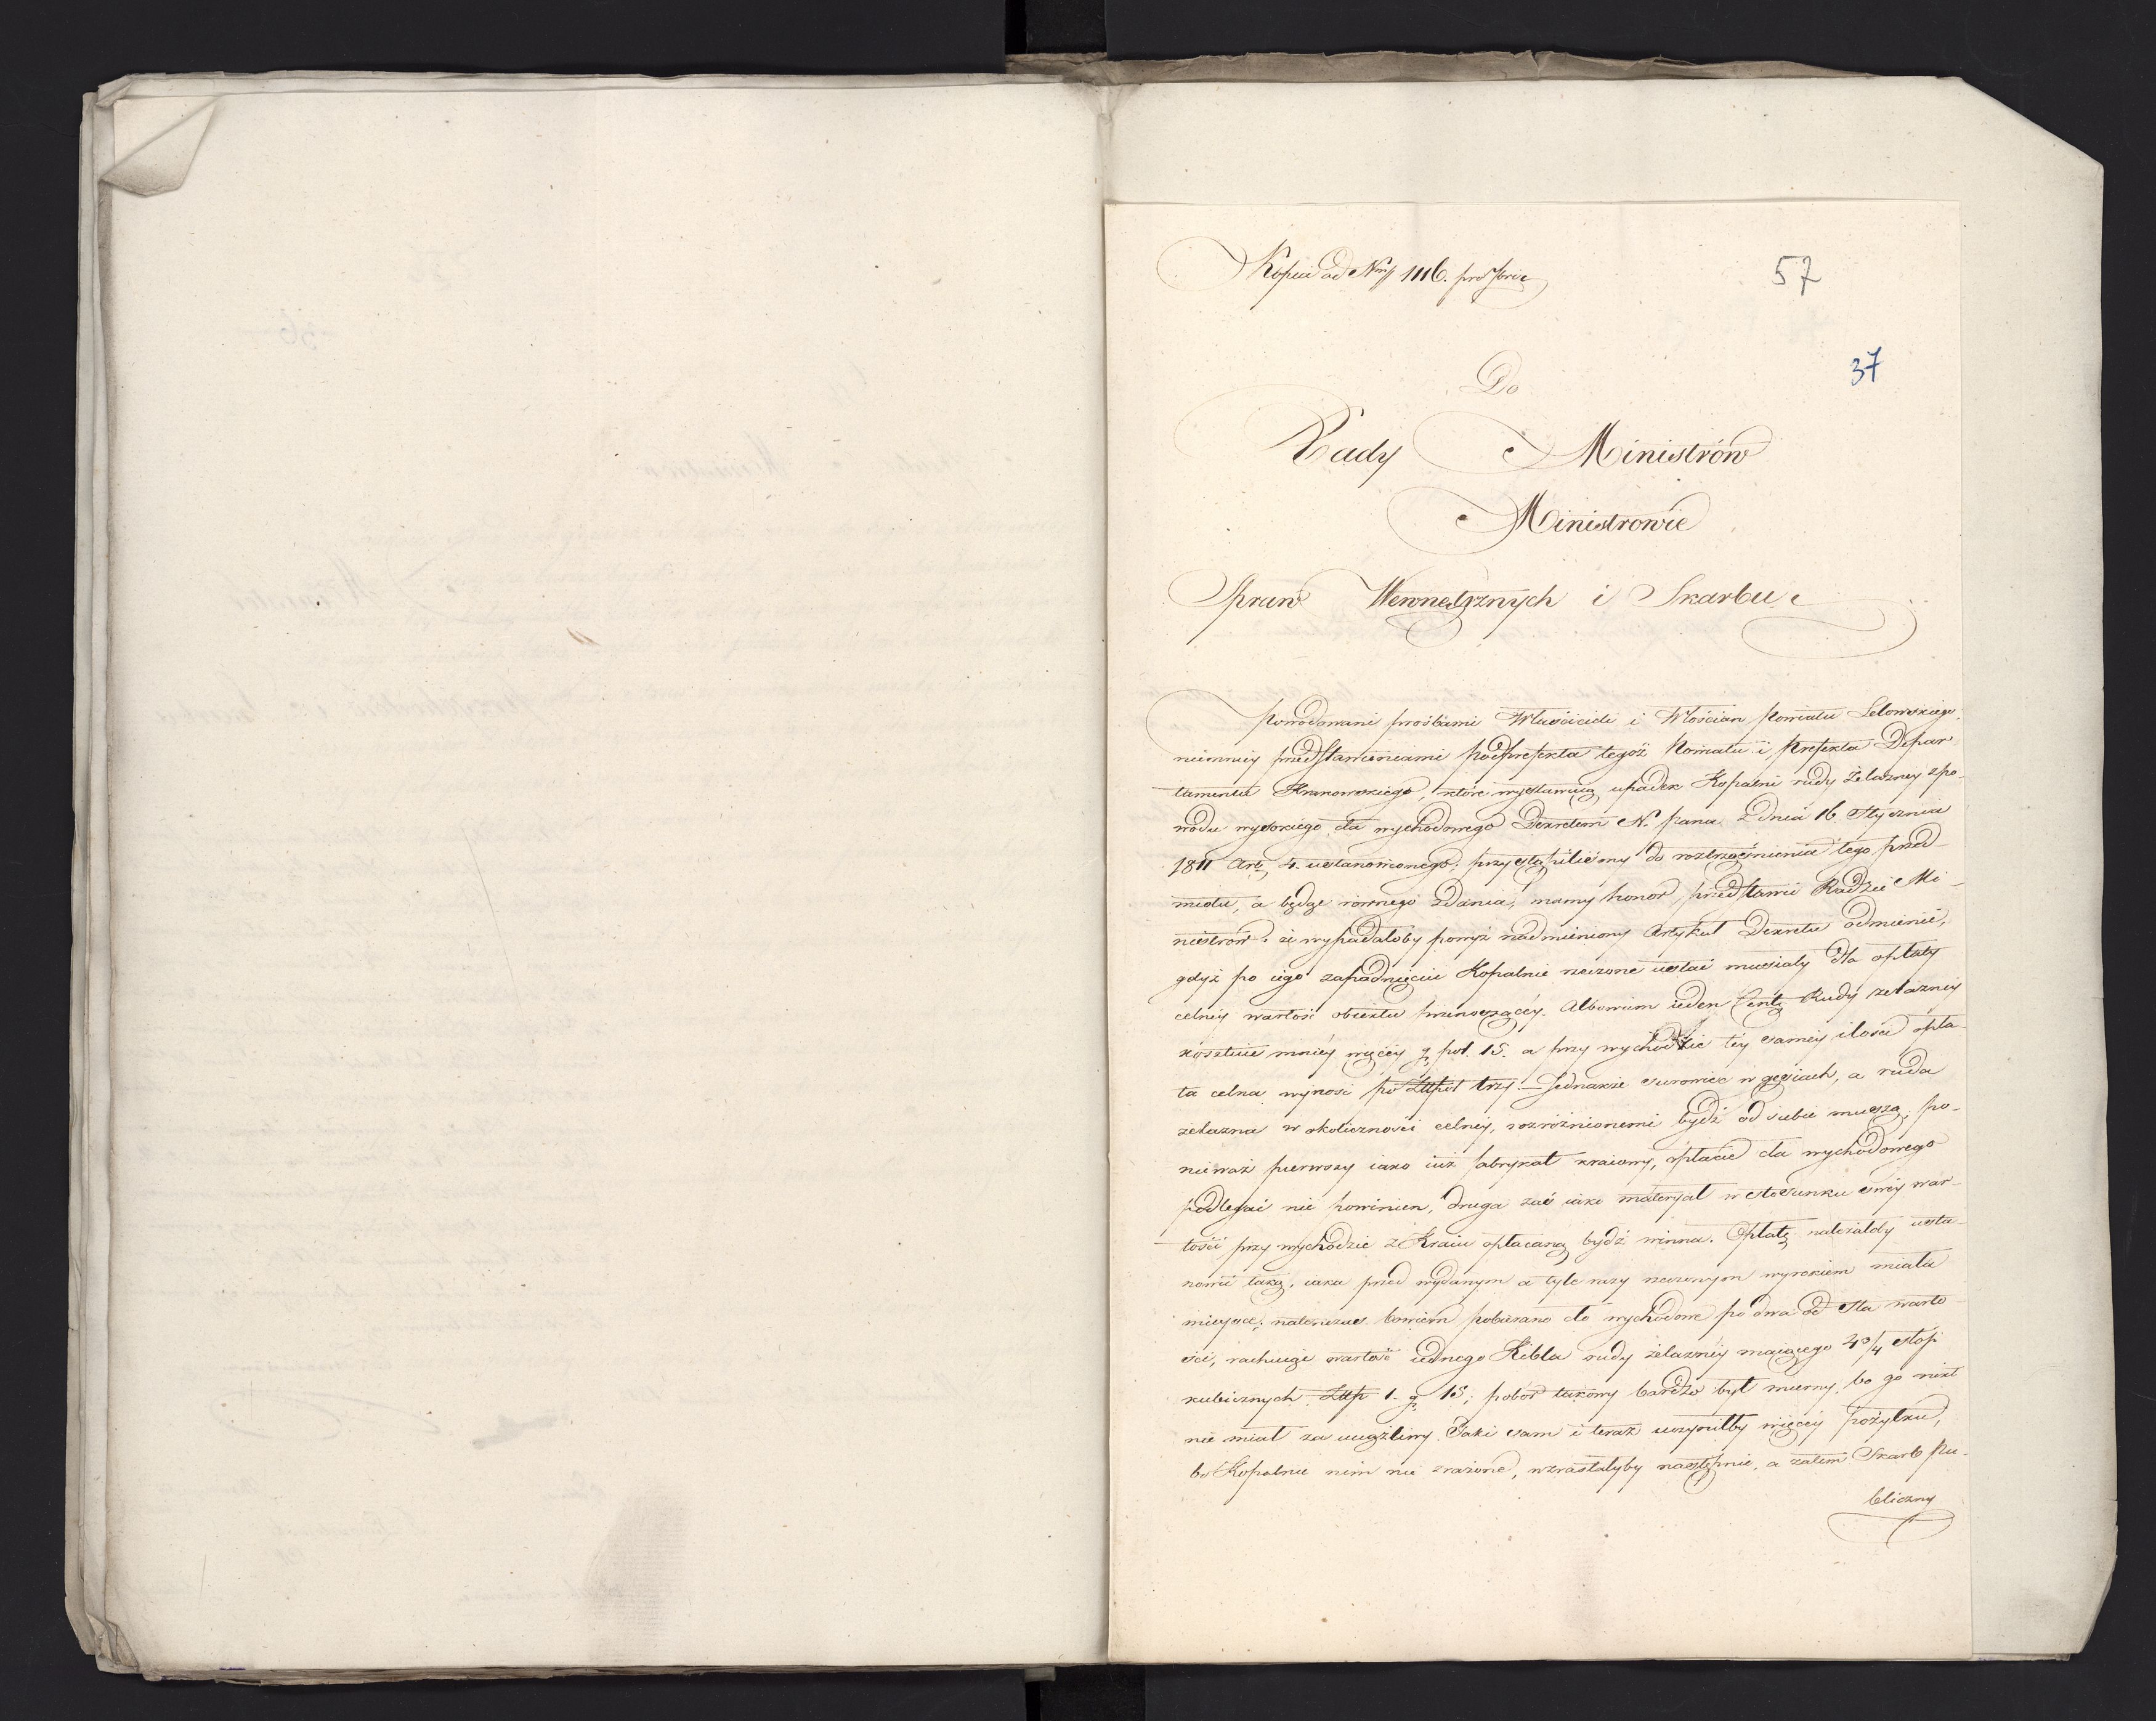 Kopia ad Nrũ 1116.
57
37
Do
Rady Ministrów
Ministrowie
Spraw Wewnętrznych i Skarbu
Powodowani prośbami Właścicieli i Włościan Powiatu Lelowskiego,
niemniey przedstawieniami Podprefekta tegoż Powiatu i Prefekta Depar-
tamentu Krakowskiego, które wystawiają upadek Kopalni rudy żelazney z po-
wodu wysokiego cła wychodowego Dekretem N. Pana z dnia 16 Stycznia
1811 Art. 4. ustanowionego; przystąpiliśmy do roztrząśnienia tego przed-
miotu, a będąc równego zdania, mamy honor przedstawić Radzie Mi-
nistrów: że wypadałoby powyż nadmieniony Artykuł Dekretu odmienić,
gdyż po iego zapadnięciu Kopalnie rzeczone ustać musiały dla opłaty
celney wartość obiektu przenoszącéy. Albowiem ieden Centr Rudy żelazney
kosztuie mniéy więcéy g. pol. 15. a przy wychodzie téy saméy ilości opła-
ta celna wynosi po Złłpol trzy. — Jednakże surowiec w gęsiach, a ruda
żelazna w okoliczności celnéy, rozróżnionemi bydź od siebie muszą, po-
nieważ pierwszy iako iuż fabrykat kraiowy, opłacie cła wychodowego
podlegać nie powinien, druga zaś iako materyał w stosunku swéy war-
tości przy wychodzie z Kraiu opłacaną bydź winna. Opłatę należałoby usta-
nowić taką, iaka przed wydanym a tyle razy rzeczonym wyrokiem miała
mieysce; natenczas bowiem pobierano cło wychodowe po dwa od sta warto-
ści, rachuiąc wartość iednego Kibla rudy żelaznéy maiącego 4¾ stóp
kubicznych Złłp 1. g. 15; pobór takowy bardzo był mierny, bo go nikt
nie miał za uciążliwy. Taki sam i teraz uczyniłby więcéy pożytku,
bo Kopalnie nim nie zrażone, wzrastałyby następnie, a zatém Skarb Pu-
bliczny